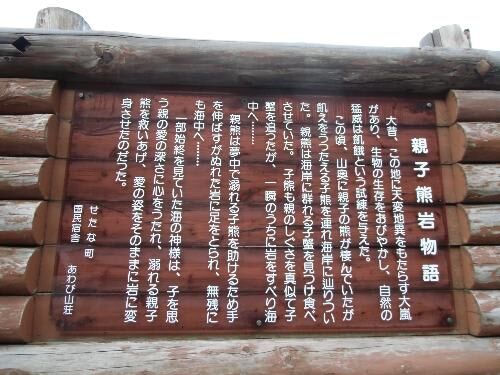 親子熊岩物語
大昔、この地に天変地異をもたらす大嵐
があり、生物の生存をおびやかし、自然の
猛威は飢餓という試練を与えた。
この頃、山奥に親子の熊が棲んでいたが
飢えをうったえる子熊を連れ海岸に辿りつい
た。親熊は海岸に群れる子蟹を見つけ食べ
させていた。子熊も親のしぐさを真似て子
蟹を追ったが、一瞬のうちに岩をすべり海
中へ……
親熊は夢中で溺れる子熊を助けるため手
を伸ばすがぬれた岩に足をとられ、無残に
も海中へ……
一部始終を見ていた海の神様は、子を思
う親の愛の深さに心をうたれ、溺れる親子
熊を救いあげ、愛の姿をそのままに岩に変
身させたのだった。
せたな町
国民宿舎 あわび山荘